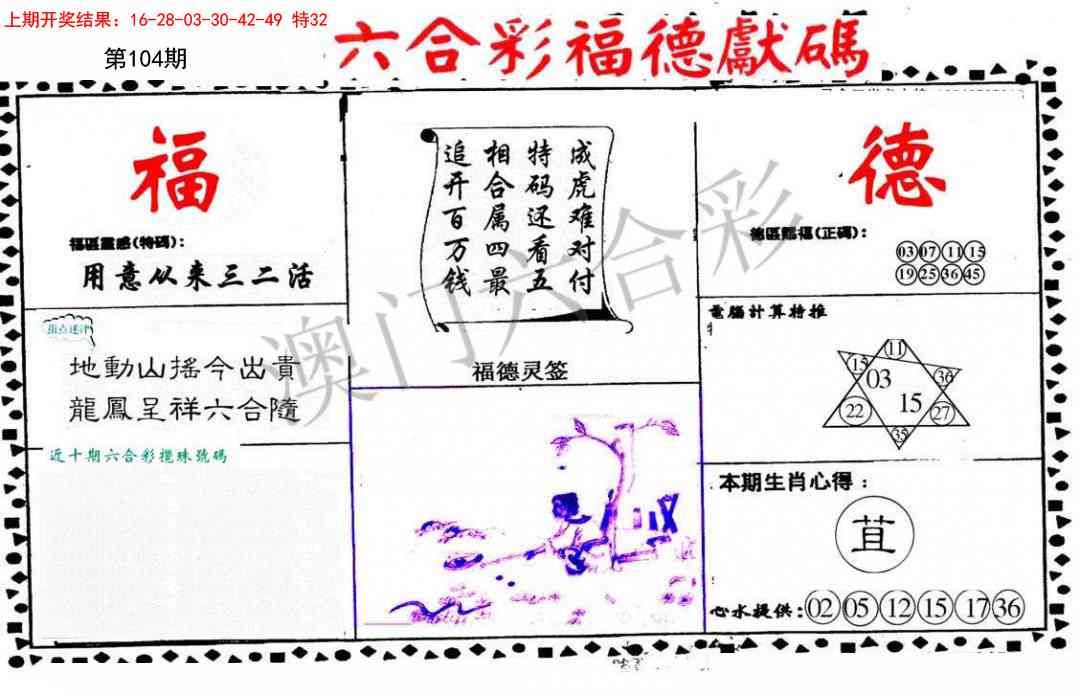 上期开奖结果：16-28-03-30-42-49 特32
第104期
六合彩福德獻碼
福
福區靈感(特碼)：
用意从来三二活
指点迷津
地動山搖今出貴
龍鳳呈祥六合隨
近十期六合彩攪珠號碼
成虎难对付
特码还看五
相合属四最
追开百万钱
福德灵签
澳门六合彩
德
德區賜福(正碼)：
03 07 11 15
19 25 36 45
電腦計算特推
11
15
03
36
22
15
27
35
本期生肖心得：
苴
心水提供：02 05 12 15 17 36